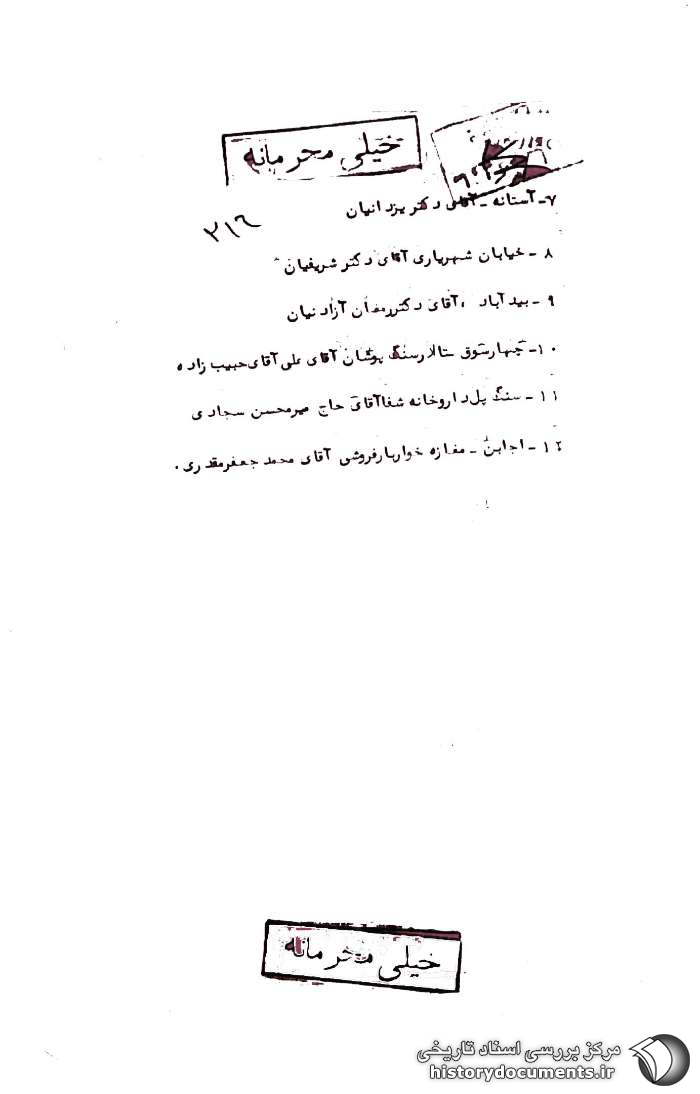 خیلی محرمانه
۷- آستانه - آقای دکتر یزدانیان
۲۱۶
۸ - خیابان شهریاری آقای دکتر شریفیان
۹ - بیدآباد ، آقای دکتر رمضان آزادنیان
۱۰- چهارسوق ستالارسنگ پوشان آقای علی آقای حبیب زاده
۱۱ - سنگ پل داروخانه شفا آقای حاج میرمحسن سجادی
۱۲ - اجابن - مغازه خواربارفروشی آقای محمد جعفر مقدری .
خیلی محرمانه
مرکز بررسی اسناد تاریخی
historydocuments.ir